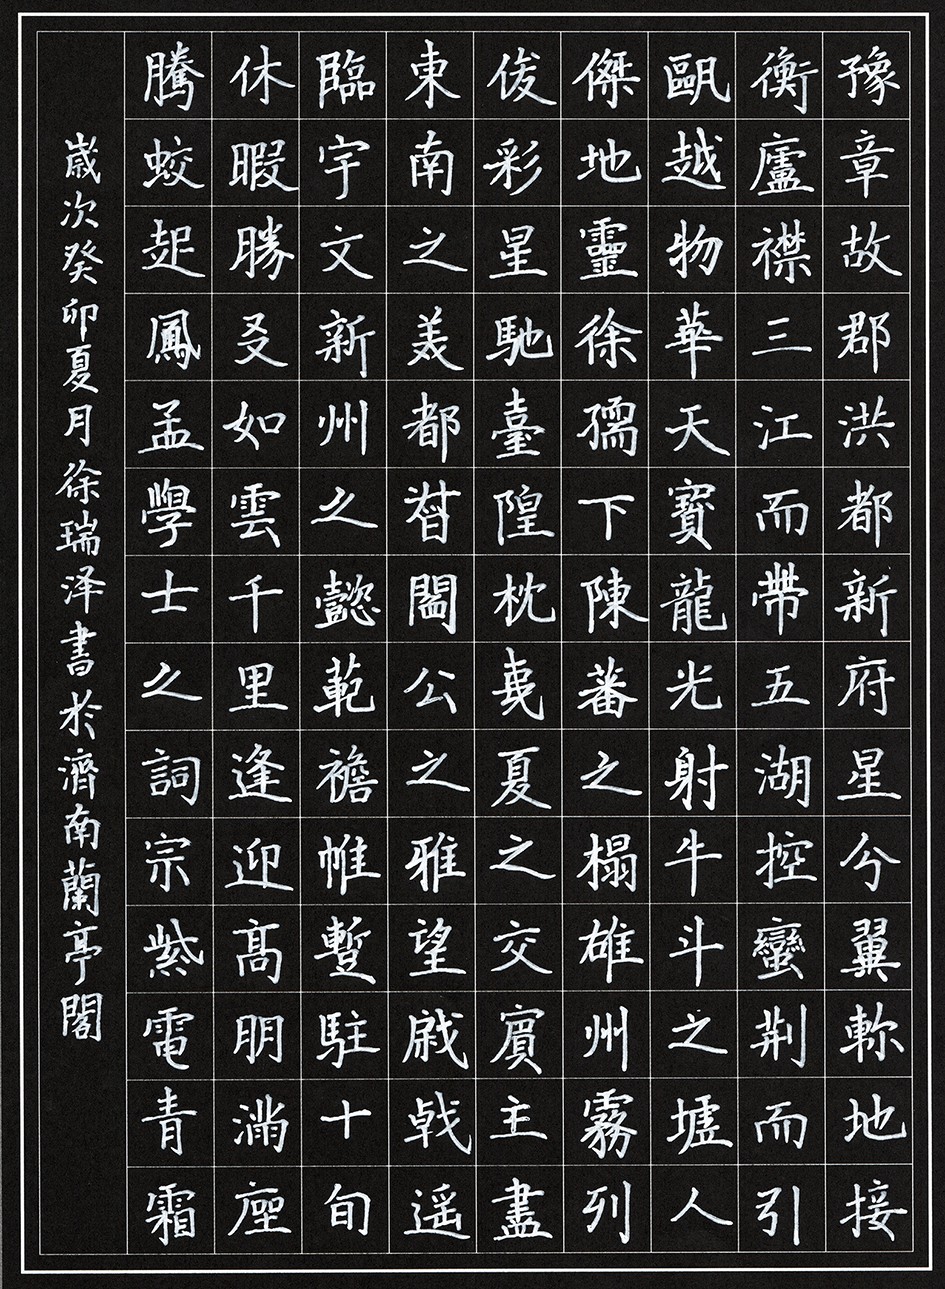 豫章故郡洪都新府星分翼軫地接
衡廬襟三江而帶五湖控蠻荆而引
甌越物華天寶龍光射牛斗之墟人
傑地靈徐孺下陳蕃之榻雄州霧列
俊彩星馳臺隍枕夷夏之交賓主盡
東南之美都督閻公之雅望戚戟遥
臨宇文新州之懿範襜帷暫駐十旬
休暇勝友如雲千里逢迎髙朋滿座
騰蛟起鳳孟學士之詞宗紫電青霜
歲次癸卯夏月徐瑞泽書於濟南蘭亭閣